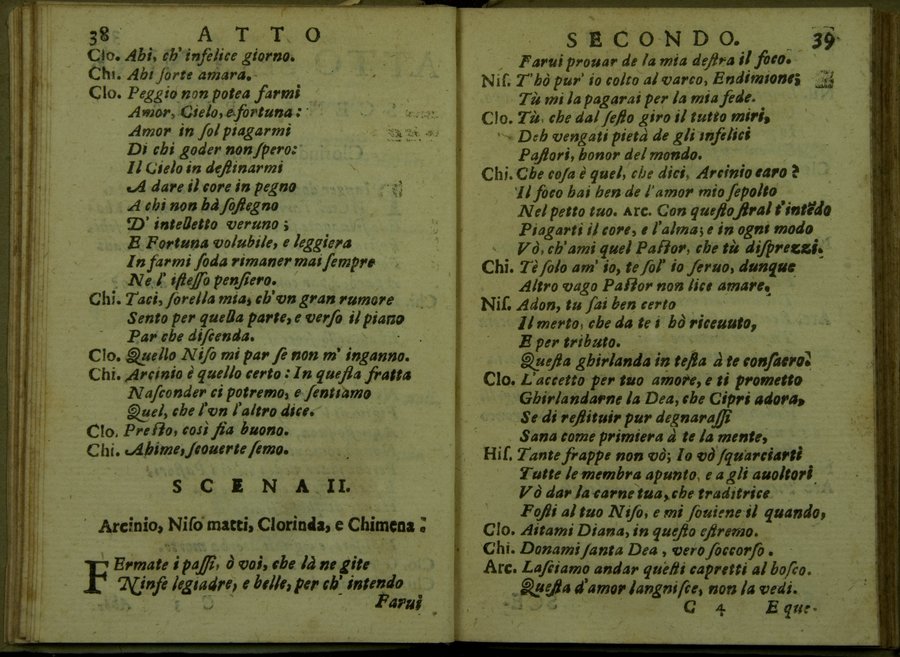 38 ATTO
Clo. Ahi, ch' infelice giorno.
Chi. Ahi ſorte amara.
Clo. Peggio non potea farmi
Amor, Cielo, e fortuna:
Amor in ſol piagarmi
Di chi goder non ſpero:
Il Cielo in deſtinarmi
A dare il core in pegno
A chi non hà ſoſtegno
D' intelletto veruno;
E Fortuna volubile, e leggiera
In farmi ſoda rimaner mai ſempre
Ne l' iſteſſo penſiero.
Chi. Taci, ſorella mia, ch'vn gran rumore
Sento per quella parte, e verſo il piano
Par che diſcenda.
Clo. Quello Niſo mi par ſe non m' inganno.
Chi. Arcinio è quello certo: In queſta fratta
Naſconder ci potremo, e ſentiamo
Quel, che l'vn l'altro dice.
Clo. Preſto, così ſia buono.
Chi. Ahime, ſcouerte ſemo.
SCENA II.
Arcinio, Niſo matti, Clorinda, e Chimena.
FErmate i paſſi, ò voi, che là ne gite
Ninfe legiadre, e belle, per ch' intendo
Farui
SECONDO. 39
Farui prouar de la mia deſtra il foco.
Niſ. T'hò pur' io colto al varco, Endimione;
Tù mi la pagarai per la mia fede.
Clo. Tù, che dal ſeſto giro il tutto miri,
Deh vengati pietà de gli infelici
Paſtori, honor del mondo.
Chi. Che coſa è quel, che dici, Arcinio caro?
Il foco hai ben de l'amor mio ſepolto
Nel petto tuo. ARC. Con queſto ſtral t'intẽdo
Piagarti il core, e l'alma; e in ogni modo
Vò, ch'ami quel Paſtor, che tù diſprezzi.
Chi. Tè ſolo am' io, te ſol' io ſeruo, dunque
Altro vago Paſtor non lice amare.
Niſ. Adon, tu ſai ben certo
Il merto, che da te i hò riceuuto,
E per tributo.
Queſta ghirlanda in teſta à te conſacro.
Clo. L'accetto per tuo amore, e ti prometto
Ghirlandarne la Dea, che Cipri adora,
Se di reſtituir pur degnaraſſi
Sana come primiera à te la mente,
Hiſ. Tante frappe non vò; Io vò ſquarciarti
Tutte le membra apunto, e a gli auoltori
Vò dar la carne tua, che traditrice
Foſti al tuo Niſo, e mi ſouiene il quando,
Clo. Aitami Diana, in queſto eſtremo.
Chi. Donami ſanta Dea, vero ſoccorſo.
Arc. Laſciamo andar queſti capretti al boſco.
Queſta d'amor langniſce, non la vedi.
C 4 E que-